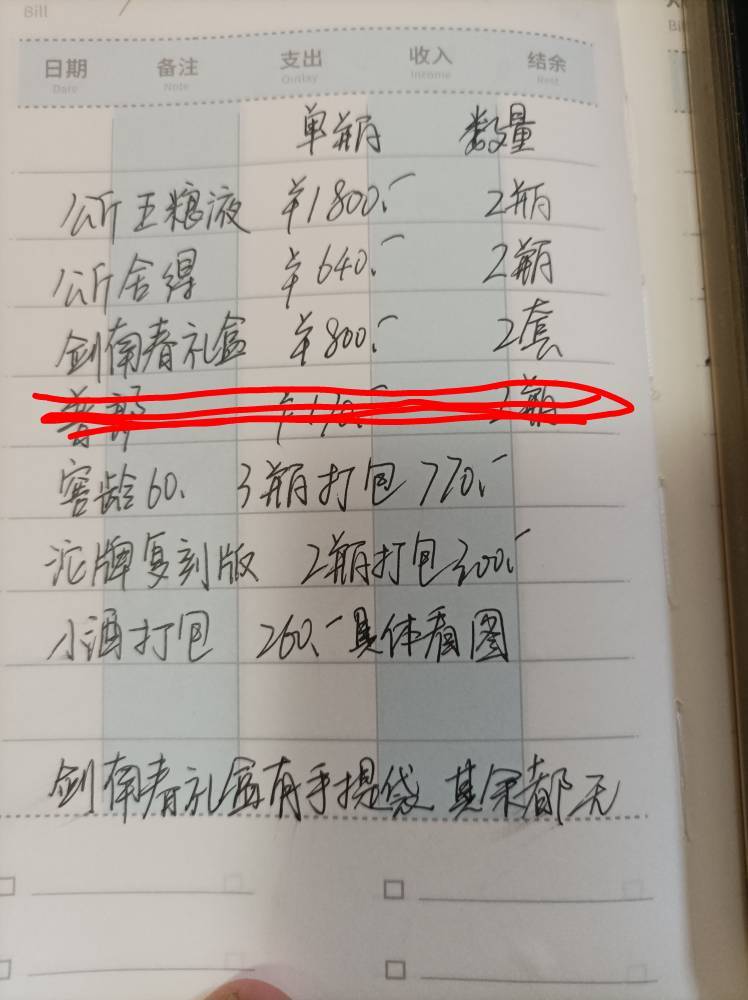 Bill
日期 备注 支出 收入 结余
Date Note Outlay Income Rest
单瓶 数量
公斤五粮液 ¥1800.- 2瓶
公斤舍得 ¥640.- 2瓶
剑南春礼盒 ¥800.- 2套
窖龄60. 3瓶打包 770.-
沱牌复刻版 2瓶打包300.-
小酒打包 260.- 具体看图
剑南春礼盒有手提袋 其余都无